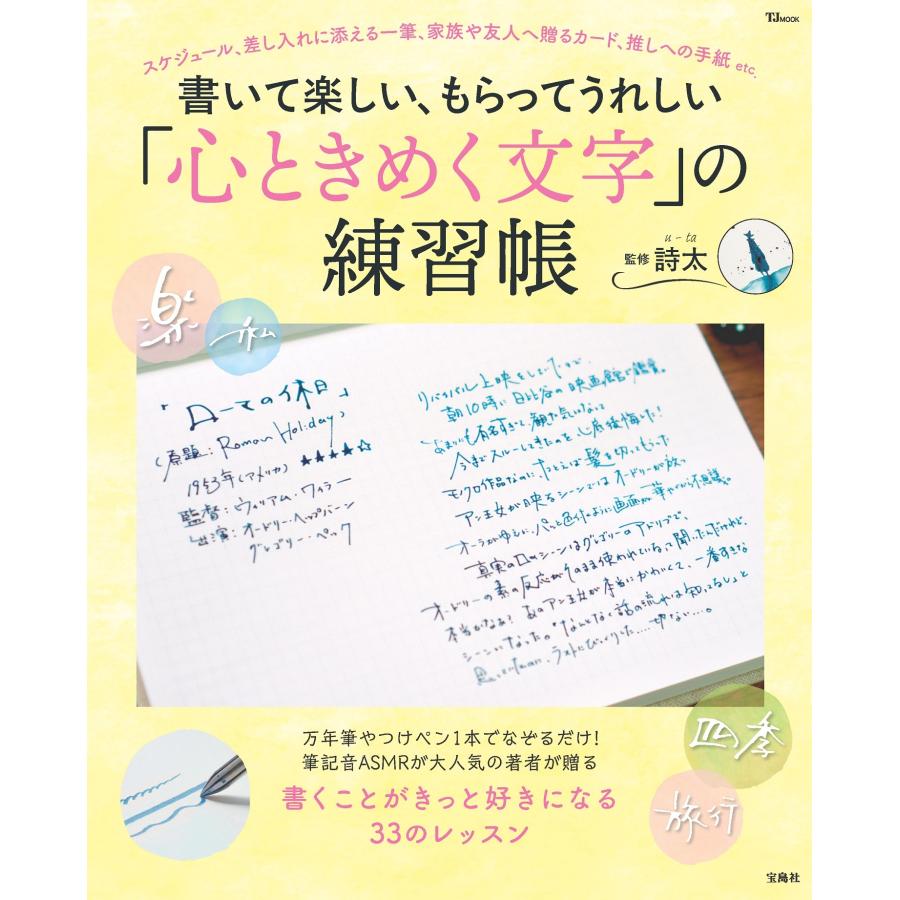 TJ MOOK
スケジュール、差し入れに添える一筆、家族や友人へ贈るカード、推しへの手紙 etc.
書いて楽しい、もらってうれしい
「心ときめく文字」の
練習帳
u-ta
監修 詩太
楽
私
「ローマの休日」
(原題：Roman Holiday)
1953年(アメリカ) ★★★★☆
監督：ウィリアム・ワイラー
出演：オードリー・ヘップバーン
グレゴリー・ペック
リバイバル上映をしていたので、
朝10時に日比谷の映画館で鑑賞。
あまりにも有名すぎて、観た気になって
今までスルーしてきたのを心底後悔した!
モノクロ作品なのに、たとえば髪を切ってもらった
アン王女が映るシーンではオードリーが放つ
オーラがゆえに、パッと色付くように画面が華やぐから不思議。
真実の口のシーンはグレゴリーのアドリブで、
オードリーの素の反応がそのまま使われているって聞いたんだけれど、
本当かなぁ? あのアン王女が本当にかわいくて、一番すきな
シーンになった。なんとなく話の流れは知ってるし、と
思っていたのに、ラストにびっくりした……切ない…。
万年筆やつけペン1本でなぞるだけ!
筆記音ASMRが大人気の著者が贈る
書くことがきっと好きになる
33のレッスン
四季
旅行
宝島社